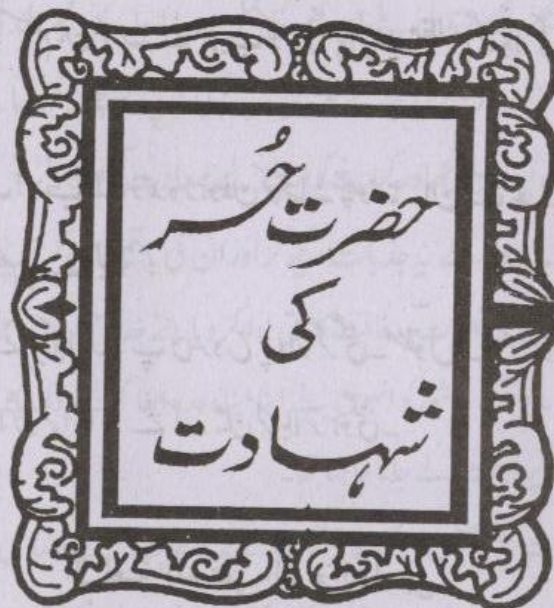 حضرت حُر
کی
شہادت